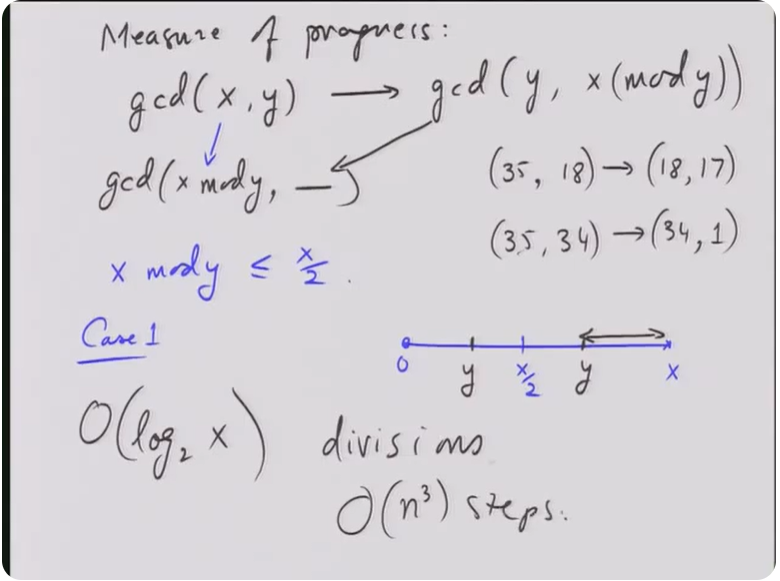 Measure of progress:
gcd(x, y) → gcd(y, x(mod y))
gcd(x mod y, —)
(35, 18) → (18, 17)
(35, 34) → (34, 1)
x mod y ≤ x/2.
Case 1
0 y x/2 y x
O(log₂ x) divisions
O(n³) steps.